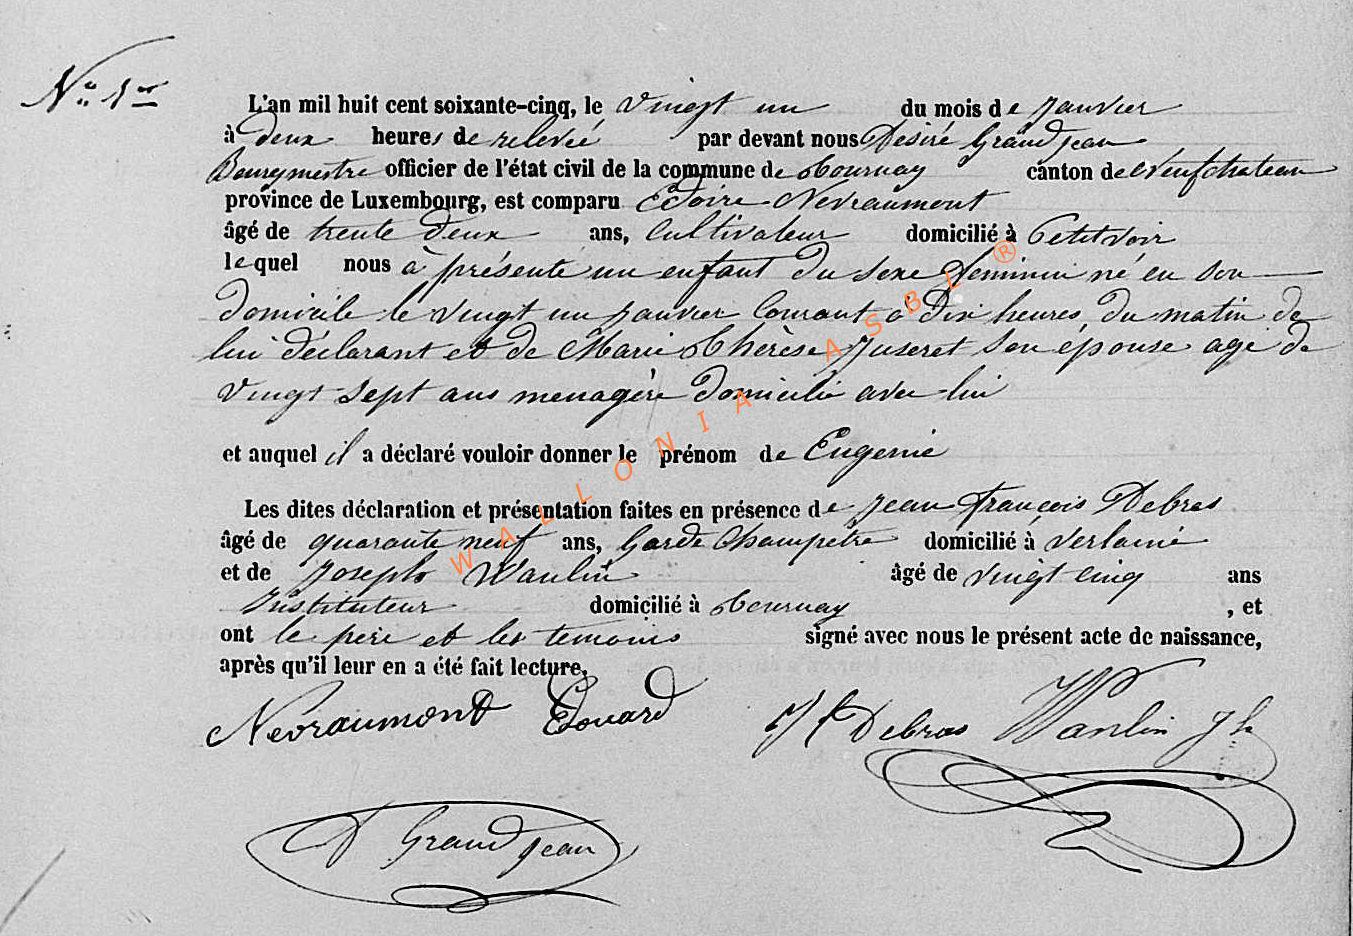 No 1er
L'an mil huit cent soixante-cinq, le vingt un du mois de Janvier
à deux heures de relevée par devant nous Desiré Grandjean
Bourgmestre officier de l'état civil de la commune de Tournay canton de Neufchateau
province de Luxembourg, est comparu Edoire Nevraumont
âgé de trente deux ans, Cultivateur domicilié à Petitvoir
lequel nous à présente un enfant du sexe feminin né en son
domicile le vingt un janvier Courant à Dix heures du matin de
lui déclarant et de Marie Thérèse Juseret son épouse agé de
vingt sept ans menagère domicilié avec lui
et auquel il a déclaré vouloir donner le prénom de Eugenie
Les dites déclaration et présentation faites en présence de Jean François Debras
âgé de quarante neuf ans, Garde Champêtre domicilié à Verlaine
et de Joseph Wanlin âgé de vingt cinq ans
Instituteur domicilié à Tournay , et
ont le père et les temoins signé avec nous le présent acte de naissance,
après qu'il leur en a été fait lecture.
Nevraumont Edouard J f Debras Wanlin Jh
D Grandjean
WALLONIA ASBL ®